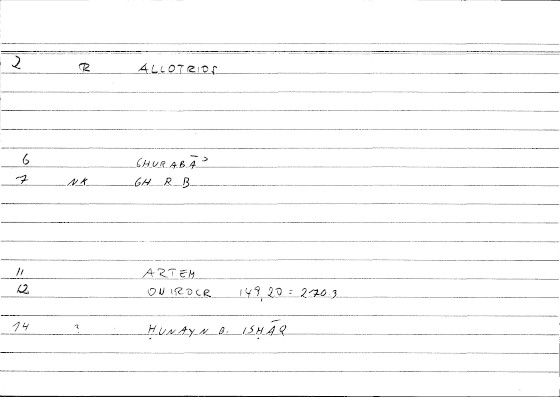 2 R ALLOTRIOS
6 GHURABĀʾ
7 NR GH R B
11 ARTEM
12 ONIROCR 149,20 = 270.3
14 ? ḤUNAYN B. ISḤĀQ